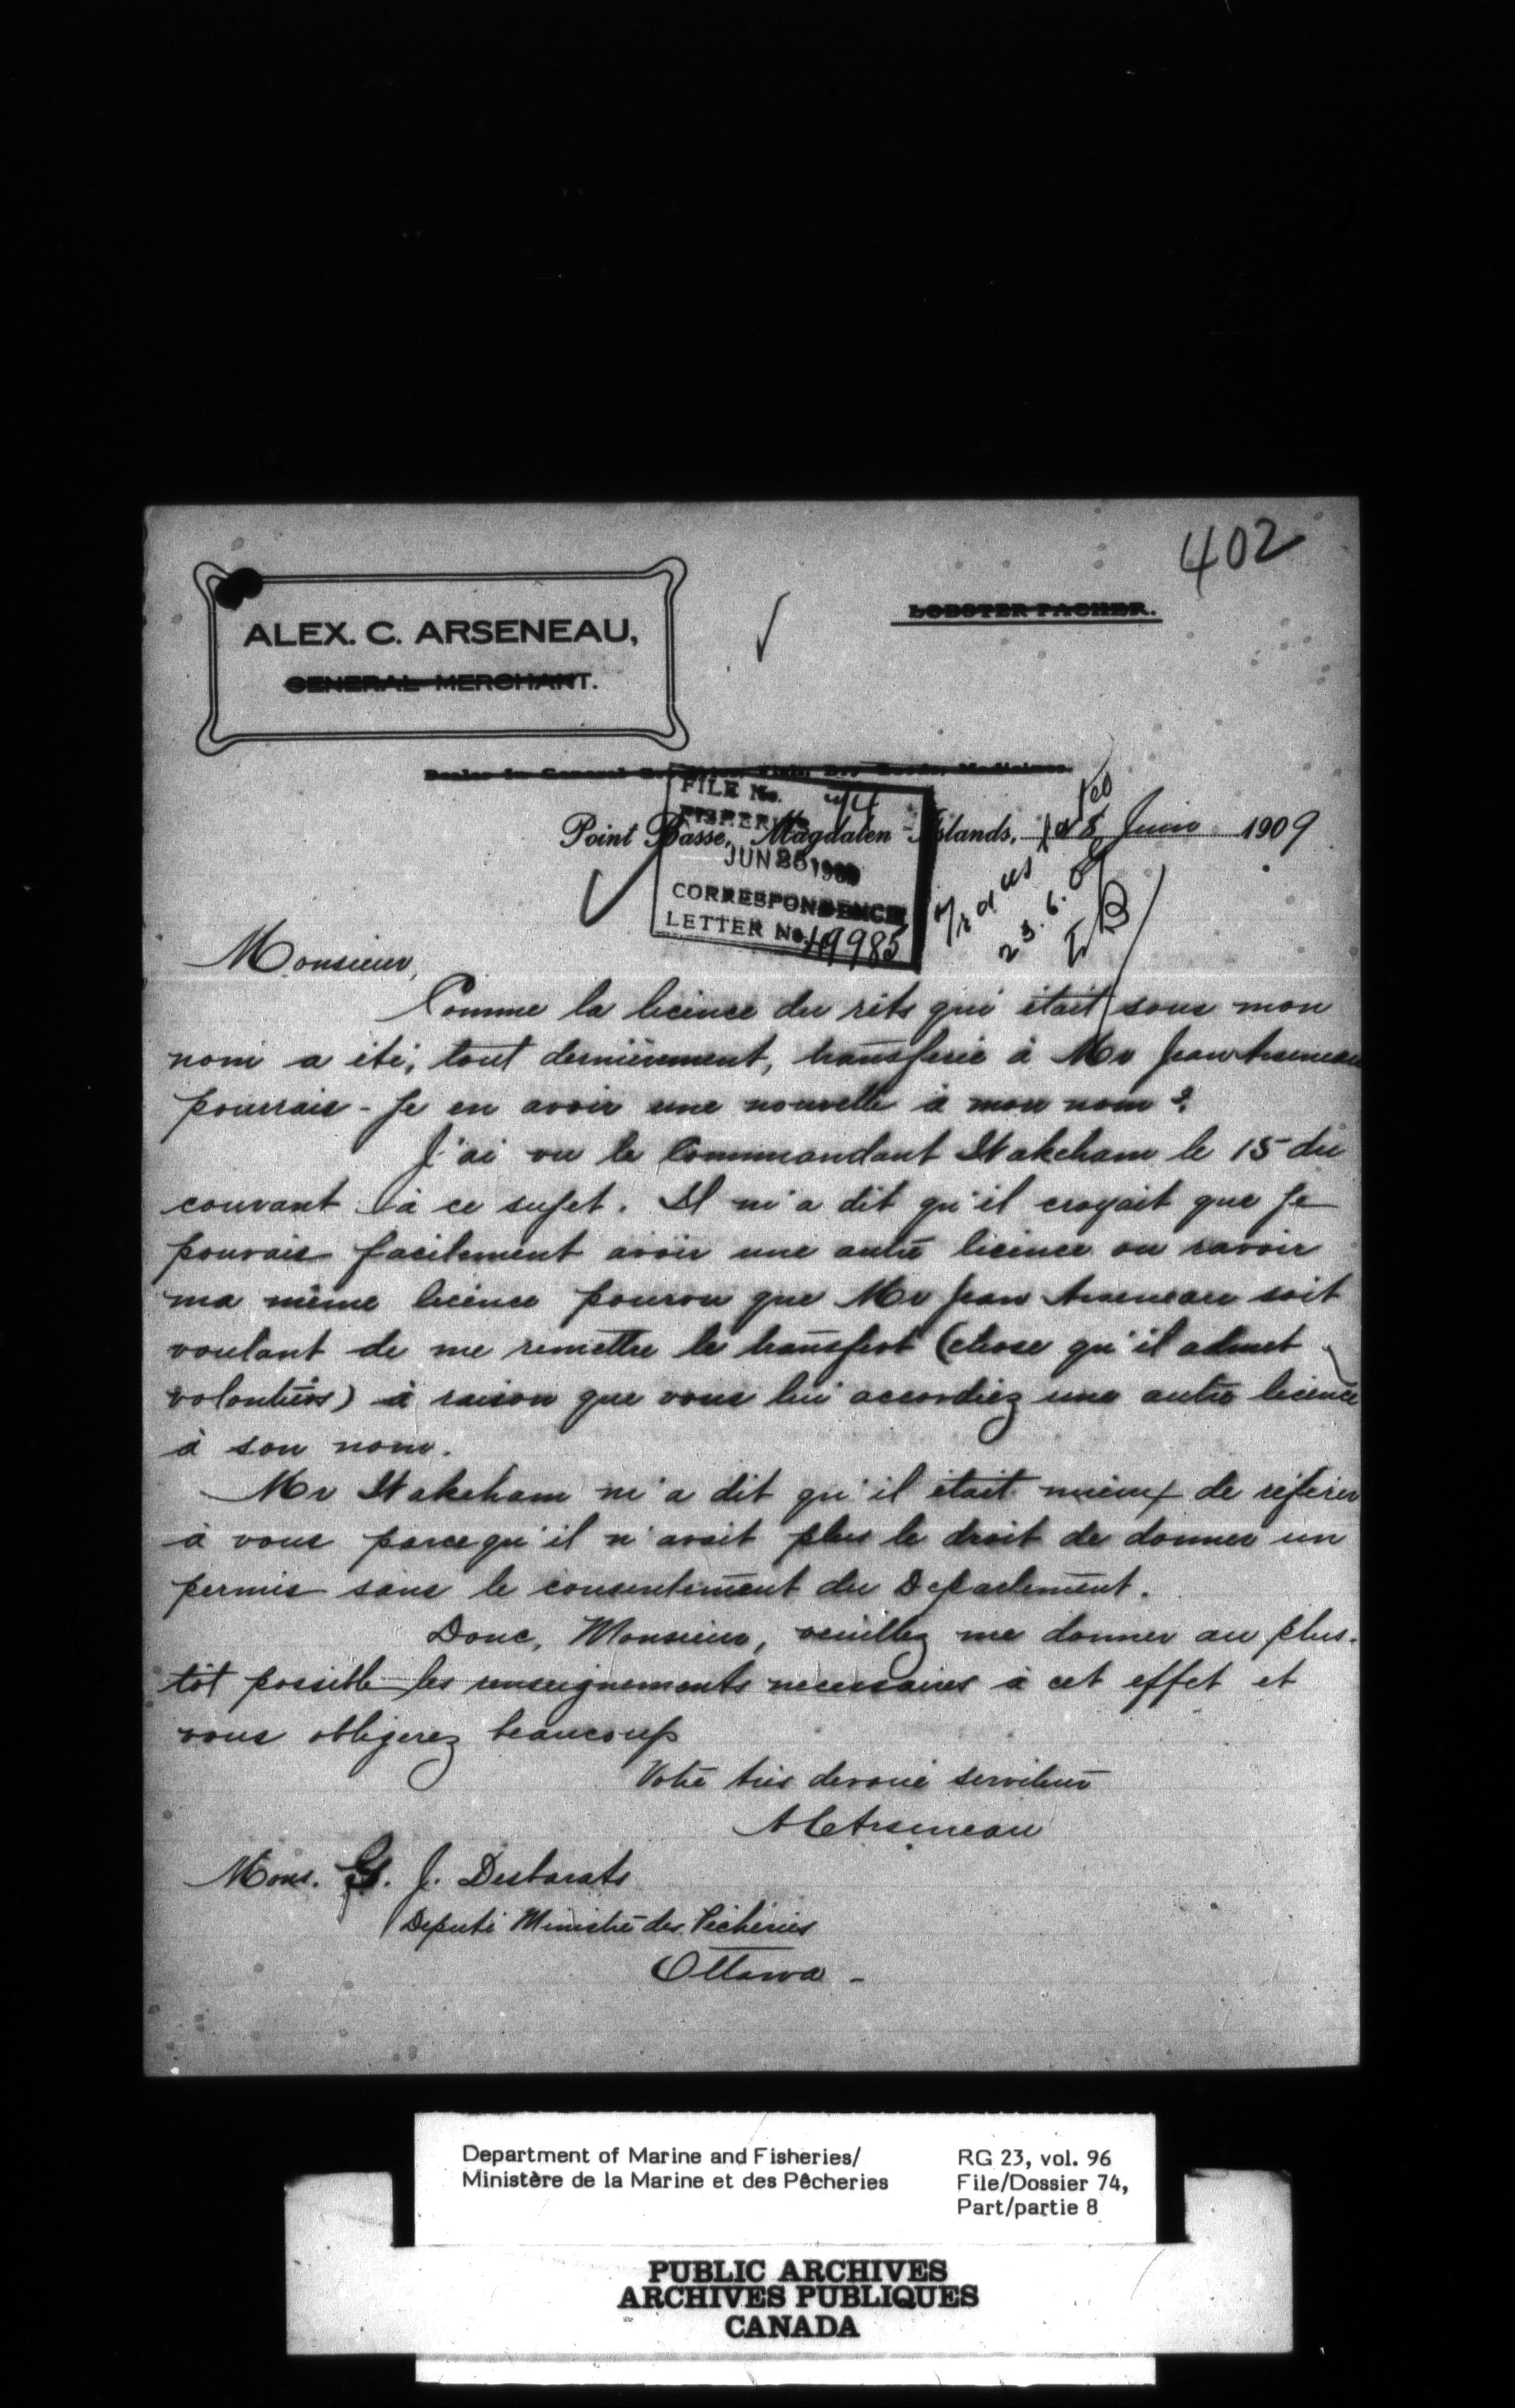 402
ALEX. C. ARSENEAU,
GENERAL MERCHANT.
LOBSTER PACKER.
FILE No. 74
FISHERIES
JUN 26 1909
CORRESPONDENCE
LETTER No. 19985
Point Basse, Magdalen Islands, Juin 1909
23.6.09
Monsieur,
Comme la licence du rets qui était sous mon
nom a été, tout dernièrement, transferée à Mr Jean Arseneau
pourrais-je en avoir une nouvelle à mon nom?
J'ai vu le Commandant Wakeham le 15 du
courant à ce sujet. Il m'a dit qu'il croyait que je
pouvais facilement avoir une autre licence ou ravoir
ma même licence pourvu que Mr Jean Arseneau soit
voulant de me remettre le transfert (chose qu'il admet
volontiers) à raison que vous lui accordiez une autre licence
à son nom.
Mr Wakeham m'a dit qu'il était mieux de référer
à vous parcequ'il n'avait plus le droit de donner un
permis sans le consentement du Departement.
Donc, Monsieur, veuillez me donner au plus-
tôt possible les renseignements necessaires à cet effet et
vous obligerez beaucoup
Votre très devoué serviteur
A C Arseneau
Mons. G. J. Desbarats
Deputé Ministre des Pêcheries
Ottawa -
Department of Marine and Fisheries/
Ministère de la Marine et des Pêcheries
RG 23, vol. 96
File/Dossier 74,
Part/partie 8
PUBLIC ARCHIVES
ARCHIVES PUBLIQUES
CANADA